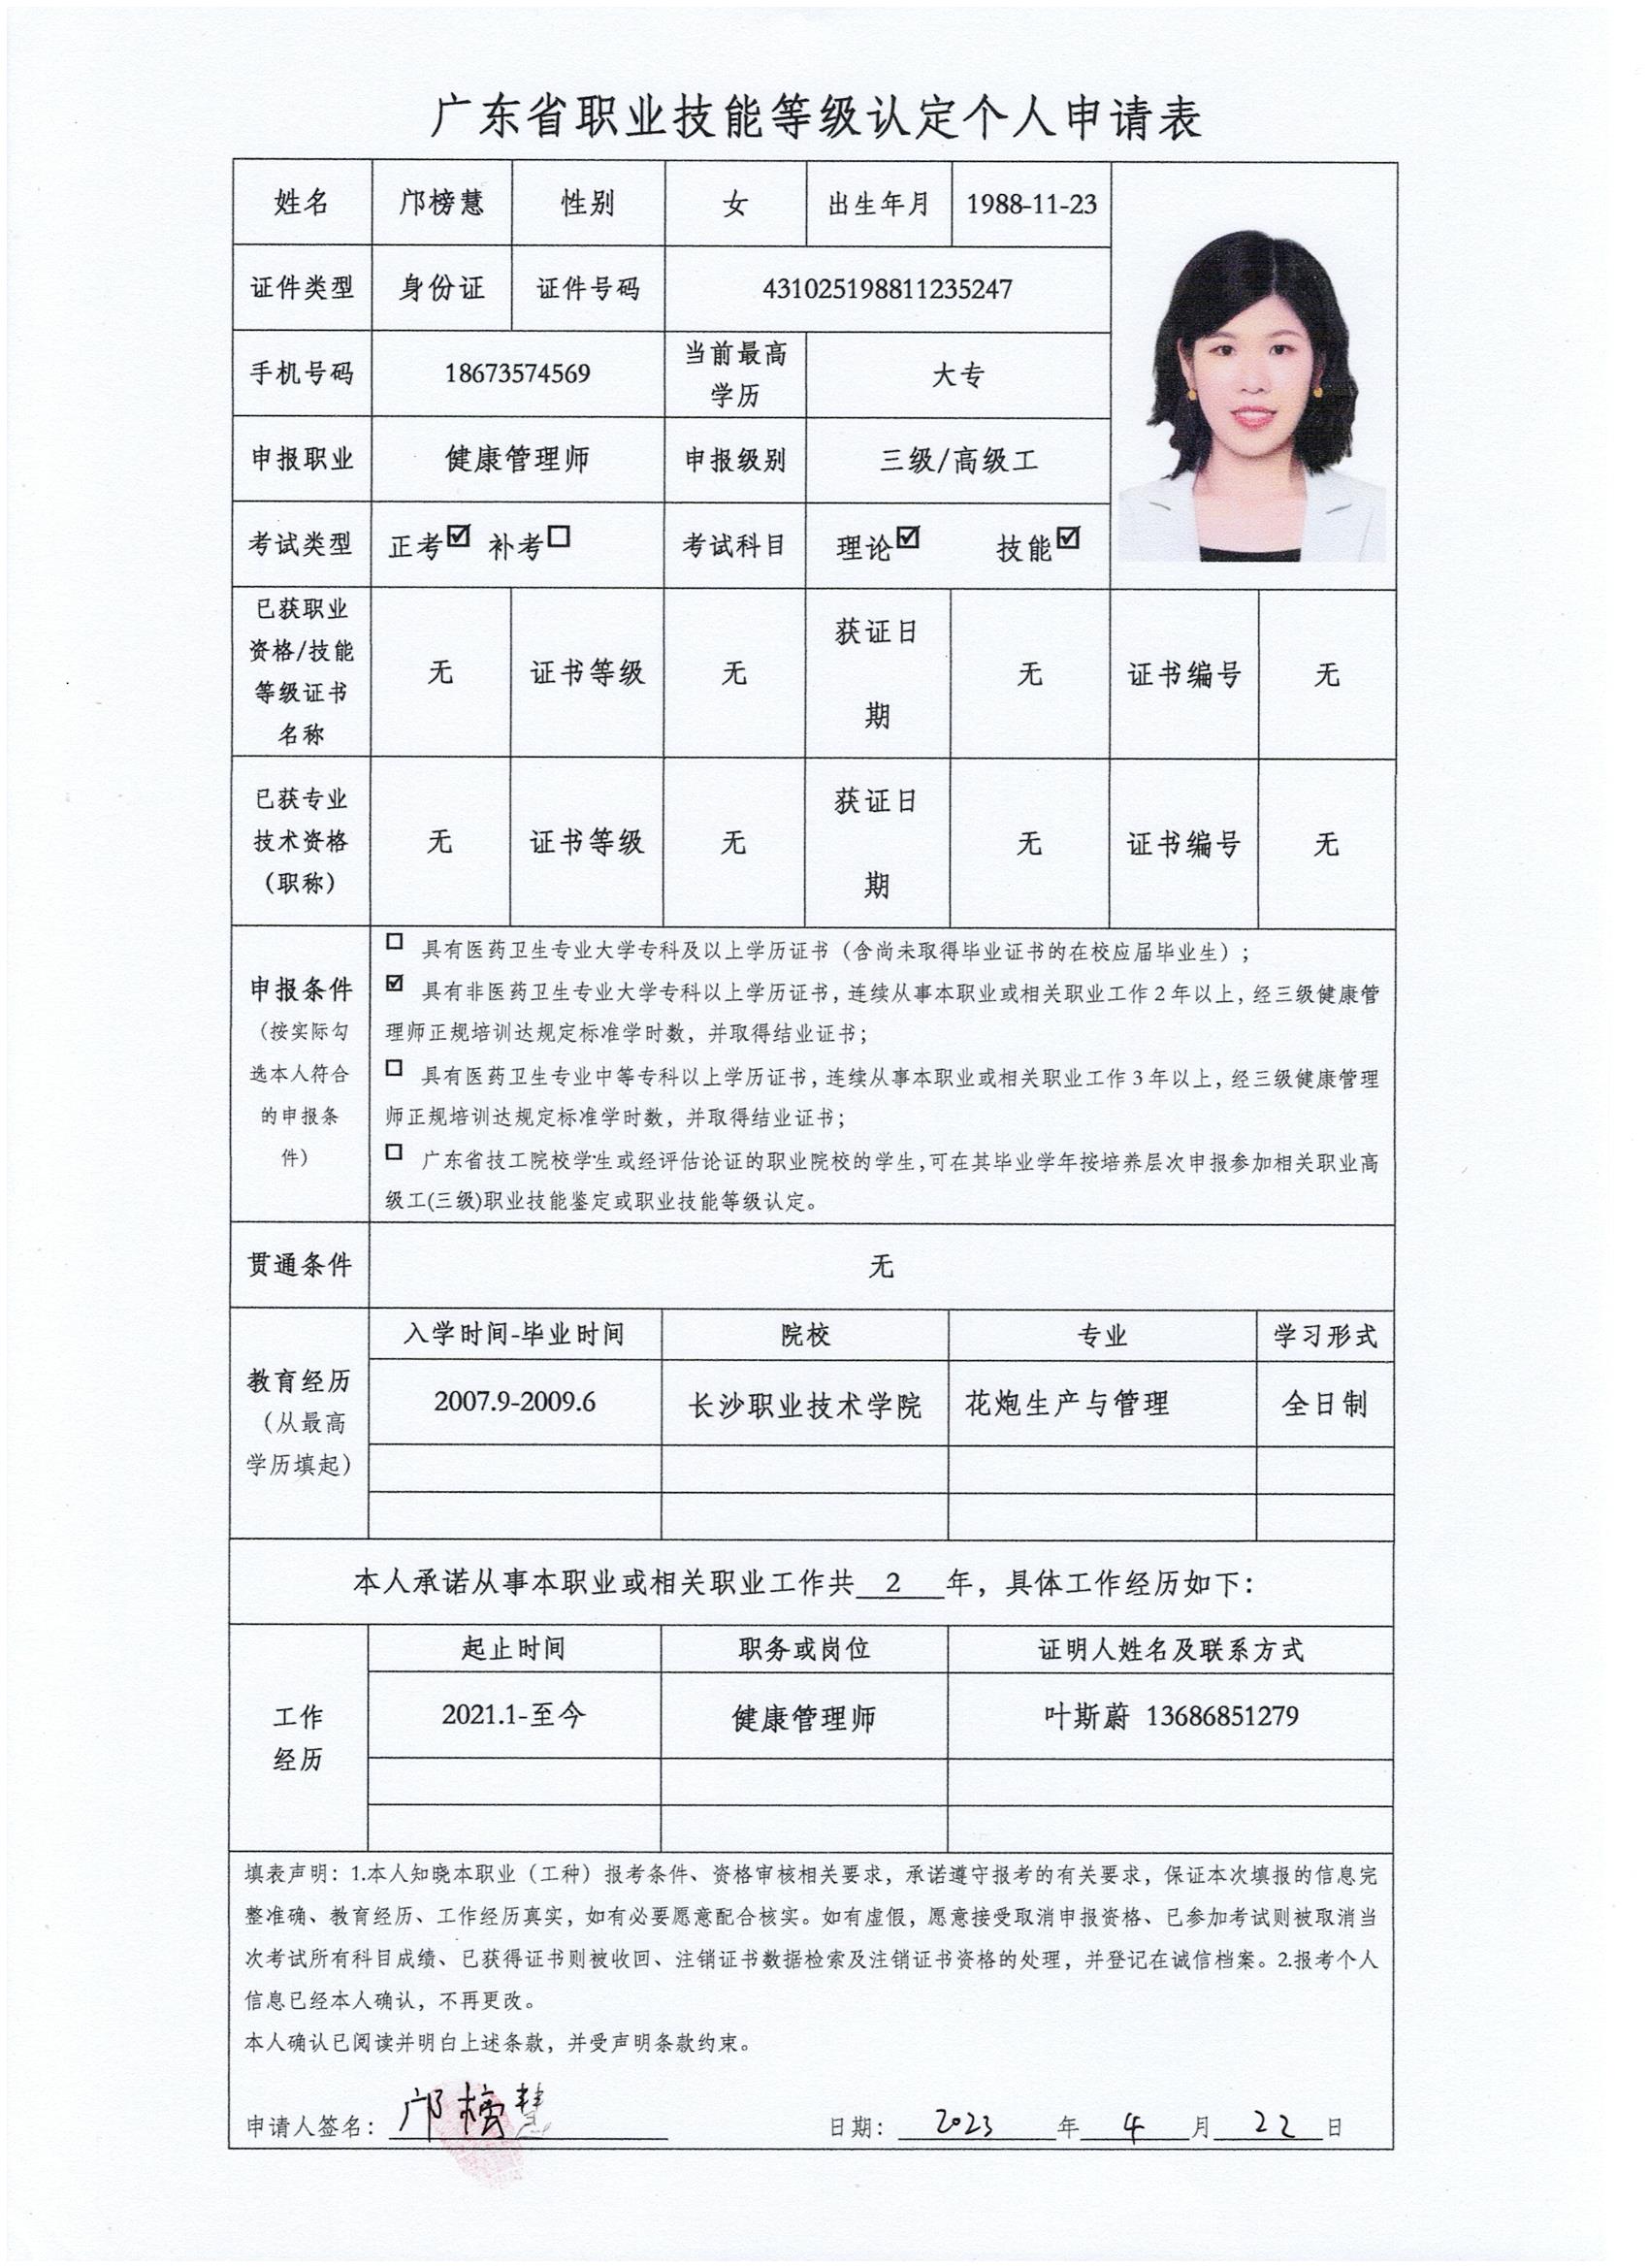 广东省职业技能等级认定个人申请表
姓名 邝榜慧 性别 女 出生年月 1988-11-23
证件类型 身份证 证件号码 431025198811235247
手机号码 18673574569 当前最高学历 大专
申报职业 健康管理师 申报级别 三级/高级工
考试类型 正考☑ 补考☐ 考试科目 理论☑ 技能☑
已获职业
资格/技能
等级证书
名称
无 证书等级 无 获证日期 无 证书编号 无
已获专业
技术资格
（职称）
无 证书等级 无 获证日期 无 证书编号 无
申报条件
（按实际勾
选本人符合
的申报条
件）
☐ 具有医药卫生专业大学专科及以上学历证书（含尚未取得毕业证书的在校应届毕业生）；
☑ 具有非医药卫生专业大学专科以上学历证书，连续从事本职业或相关职业工作2年以上，经三级健康管
理师正规培训达规定标准学时数，并取得结业证书；
☐ 具有医药卫生专业中等专科以上学历证书，连续从事本职业或相关职业工作3年以上，经三级健康管理
师正规培训达规定标准学时数，并取得结业证书；
☐ 广东省技工院校学生或经评估论证的职业院校的学生，可在其毕业学年按培养层次申报参加相关职业高
级工(三级)职业技能鉴定或职业技能等级认定。
贯通条件 无
教育经历
（从最高
学历填起）
入学时间-毕业时间 院校 专业 学习形式
2007.9-2009.6 长沙职业技术学院 花炮生产与管理 全日制
本人承诺从事本职业或相关职业工作共 2 年，具体工作经历如下：
工作
经历
起止时间 职务或岗位 证明人姓名及联系方式
2021.1-至今 健康管理师 叶斯蔚 13686851279
填表声明：1.本人知晓本职业（工种）报考条件、资格审核相关要求，承诺遵守报考的有关要求，保证本次填报的信息完
整准确、教育经历、工作经历真实，如有必要愿意配合核实。如有虚假，愿意接受取消申报资格、已参加考试则被取消当
次考试所有科目成绩、已获得证书则被收回、注销证书数据检索及注销证书资格的处理，并登记在诚信档案。2.报考个人
信息已经本人确认，不再更改。
本人确认已阅读并明白上述条款，并受声明条款约束。
申请人签名：邝榜慧 日期：2023年4月22日